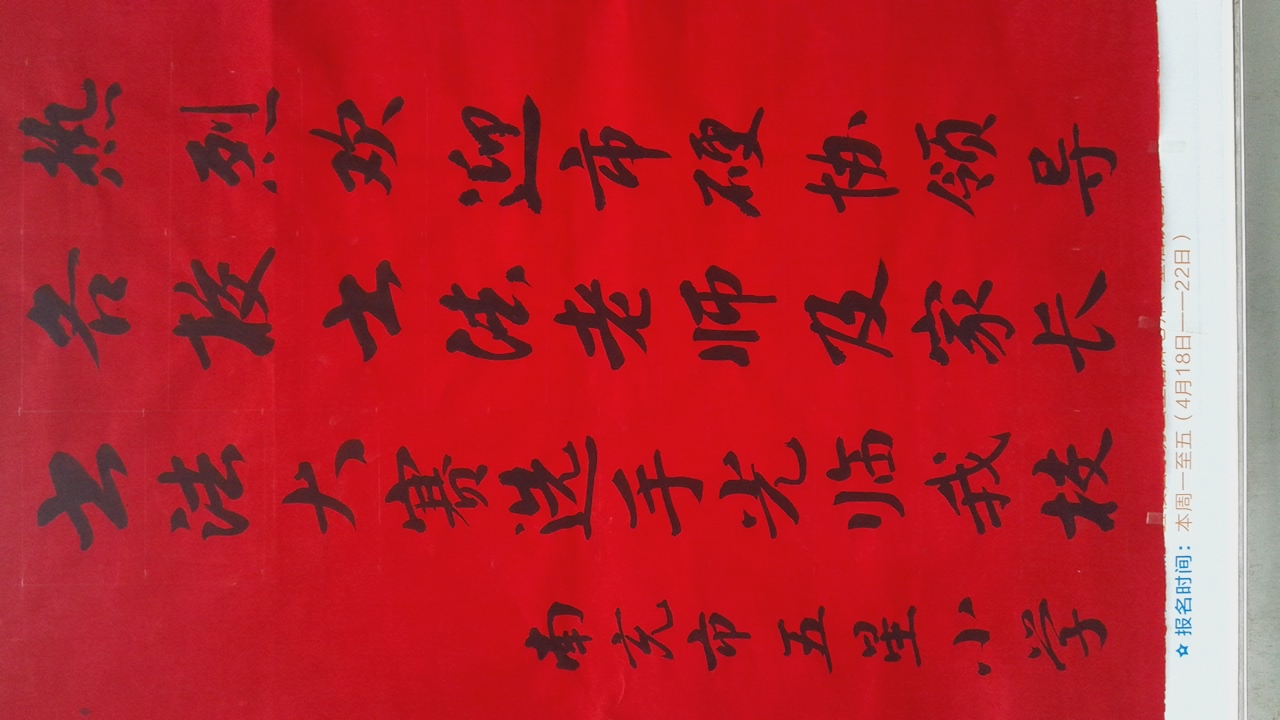 热烈欢迎市硬协领导
各校书法老师及家长
书法大赛选手光临我校
南充市五星小学
☆报名时间：本周一至五（4月18日——22日）